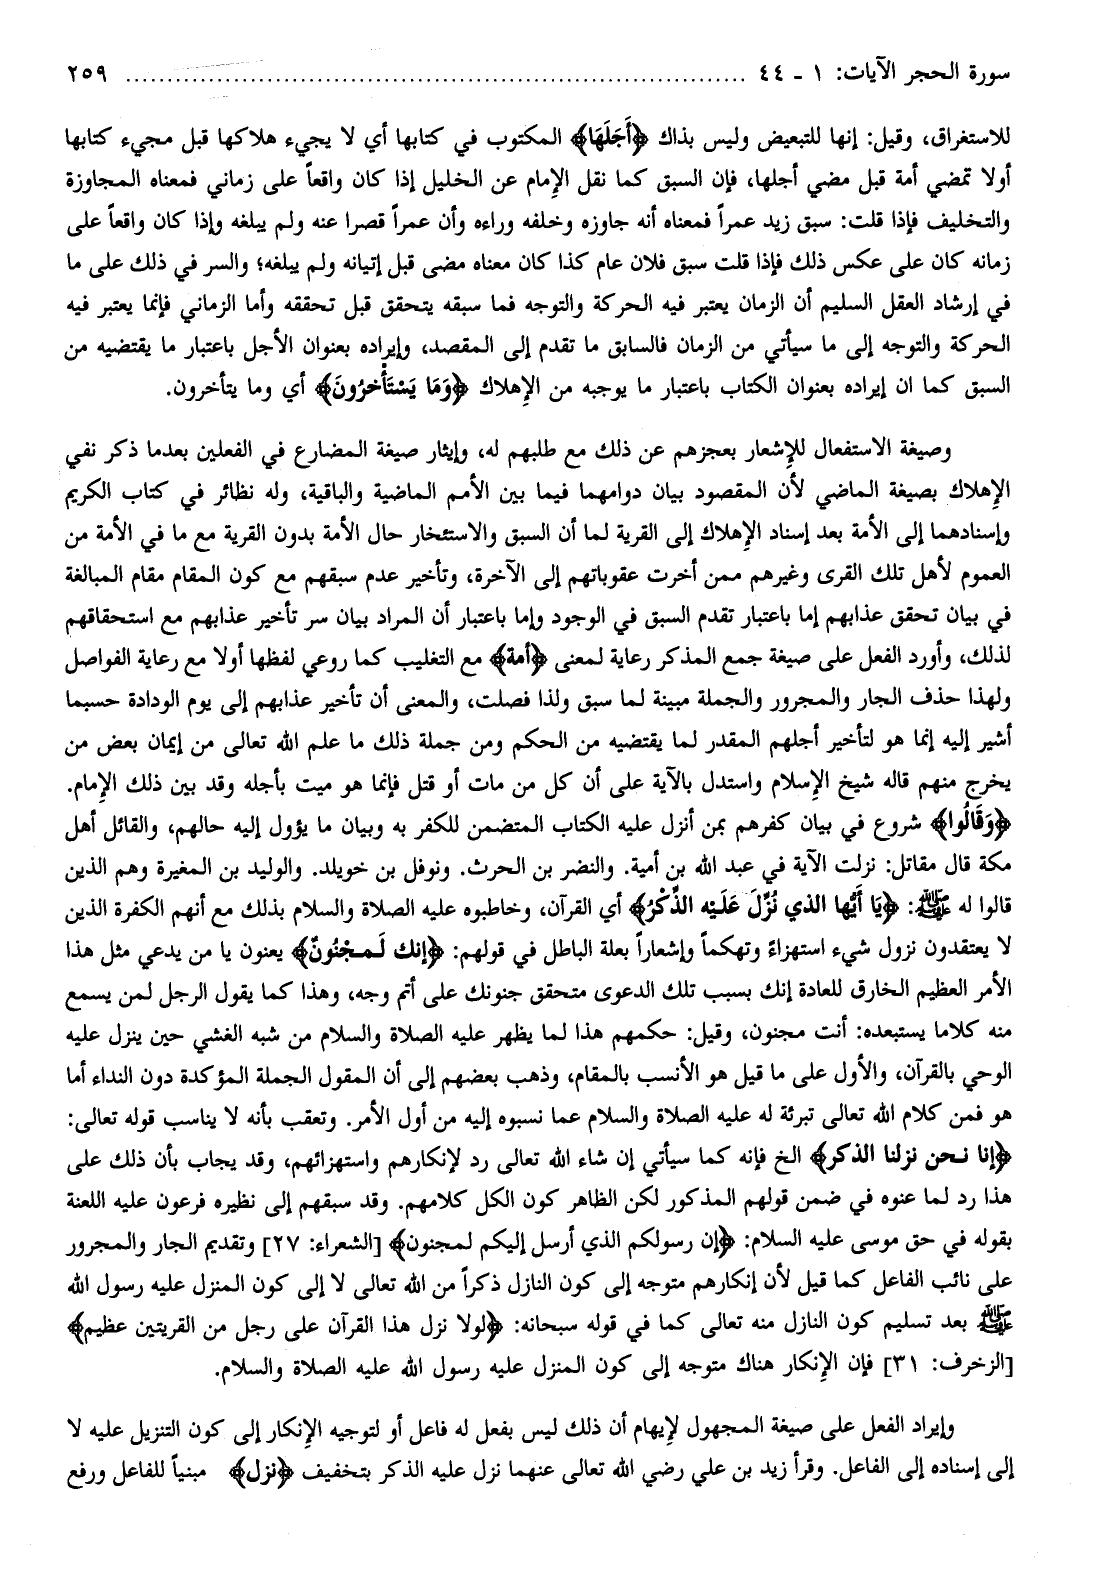 سورة الحجر الآيات: ١ ـ ٤٤ ........................................................................... ٢٥٩
للاستغراق، وقيل: إنها للتبعيض وليس بذاك ﴿أَجَلَهَا﴾ المكتوب في كتابها أي لا يجيء هلاكها قبل مجيء كتابها
أولا تمضي أمة قبل مضي أجلها، فإن السبق كما نقل الإمام عن الخليل إذا كان واقعاً على زماني فمعناه المجاوزة
والتخليف فإذا قلت: سبق زيد عمراً فمعناه أنه جاوزه وخلفه وراءه وأن عمراً قصرا عنه ولم يبلغه وإذا كان واقعاً على
زمانه كان على عكس ذلك فإذا قلت سبق فلان عام كذا كان معناه مضى قبل إتيانه ولم يبلغه؛ والسر في ذلك على ما
في إرشاد العقل السليم أن الزمان يعتبر فيه الحركة والتوجه فما سبقه يتحقق قبل تحققه وأما الزماني فإنما يعتبر فيه
الحركة والتوجه إلى ما سيأتي من الزمان فالسابق ما تقدم إلى المقصد، وإيراده بعنوان الأجل باعتبار ما يقتضيه من
السبق كما ان إيراده بعنوان الكتاب باعتبار ما يوجبه من الإهلاك ﴿وَمَا يَسْتَأْخِرُونَ﴾ أي وما يتأخرون.
وصيغة الاستفعال للإشعار بعجزهم عن ذلك مع طلبهم له، وإيثار صيغة المضارع في الفعلين بعدما ذكر نفي
الإهلاك بصيغة الماضي لأن المقصود بيان دوامهما فيما بين الأمم الماضية والباقية، وله نظائر في كتاب الكريم
وإسنادهما إلى الأمة بعد إسناد الإهلاك إلى القرية لما أن السبق والاستئخار حال الأمة بدون القرية مع ما في الأمة من
العموم لأهل تلك القرى وغيرهم ممن أخرت عقوباتهم إلى الآخرة، وتأخير عدم سبقهم مع كون المقام مقام المبالغة
في بيان تحقق عذابهم إما باعتبار تقدم السبق في الوجود وإما باعتبار أن المراد بيان سر تأخير عذابهم مع استحقاقهم
لذلك، وأورد الفعل على صيغة جمع المذكر رعاية لمعنى ﴿أمة﴾ مع التغليب كما روعي لفظها أولا مع رعاية الفواصل
ولهذا حذف الجار والمجرور والجملة مبينة لما سبق ولذا فصلت، والمعنى أن تأخير عذابهم إلى يوم الودادة حسبما
أشير إليه إنما هو لتأخير أجلهم المقدر لما يقتضيه من الحكم ومن جملة ذلك ما علم الله تعالى من إيمان بعض من
يخرج منهم قاله شيخ الإسلام واستدل بالآية على أن كل من مات أو قتل فإنما هو ميت بأجله وقد بين ذلك الإمام.
﴿وَقَالُوا﴾ شروع في بيان كفرهم بمن أنزل عليه الكتاب المتضمن للكفر به وبيان ما يؤول إليه حالهم، والقائل أهل
مكة قال مقاتل: نزلت الآية في عبد الله بن أمية. والنضر بن الحرث. ونوفل بن خويلد. والوليد بن المغيرة وهم الذين
قالوا له ﷺ: ﴿يَا أَيُّها الذي نُزِّلَ عَلَيْه الذِّكْرُ﴾ أي القرآن، وخاطبوه عليه الصلاة والسلام بذلك مع أنهم الكفرة الذين
لا يعتقدون نزول شيء استهزاءً وتهكماً وإشعاراً بعلة الباطل في قولهم: ﴿إنك لَمجْنُونٌ﴾ يعنون يا من يدعي مثل هذا
الأمر العظيم الخارق للعادة إنك بسبب تلك الدعوى متحقق جنونك على أتم وجه، وهذا كما يقول الرجل لمن يسمع
منه كلاما يستبعده: أنت مجنون، وقيل: حكمهم هذا لما يظهر عليه الصلاة والسلام من شبه الغشي حين ينزل عليه
الوحي بالقرآن، والأول على ما قيل هو الأنسب بالمقام، وذهب بعضهم إلى أن المقول الجملة المؤكدة دون النداء أما
هو فمن كلام الله تعالى تبرئة له عليه الصلاة والسلام عما نسبوه إليه من أول الأمر. وتعقب بأنه لا يناسب قوله تعالى:
﴿إنا نحن نزلنا الذكر﴾ الخ فإنه كما سيأتي إن شاء الله تعالى رد لإنكارهم واستهزائهم، وقد يجاب بأن ذلك على
هذا رد لما عنوه في ضمن قولهم المذكور لكن الظاهر كون الكل كلامهم. وقد سبقهم إلى نظيره فرعون عليه اللعنة
بقوله في حق موسى عليه السلام: ﴿إن رسولكم الذي أرسل إليكم لمجنون﴾ [الشعراء: ٢٧] وتقديم الجار والمجرور
على نائب الفاعل كما قيل لأن إنكارهم متوجه إلى كون النازل ذكراً من الله تعالى لا إلى كون المنزل عليه رسول الله
ﷺ بعد تسليم كون النازل منه تعالى كما في قوله سبحانه: ﴿لولا نزل هذا القرآن على رجل من القريتين عظيم﴾
[الزخرف: ٣١] فإن الإنكار هناك متوجه إلى كون المنزل عليه رسول الله عليه الصلاة والسلام.
وإيراد الفعل على صيغة المجهول لإيهام أن ذلك ليس بفعل له فاعل أو لتوجيه الإنكار إلى كون التنزيل عليه لا
إلى إسناده إلى الفاعل. وقرأ زيد بن علي رضي الله تعالى عنهما نزل عليه الذكر بتخفيف ﴿نزل﴾ مبنياً للفاعل ورفع